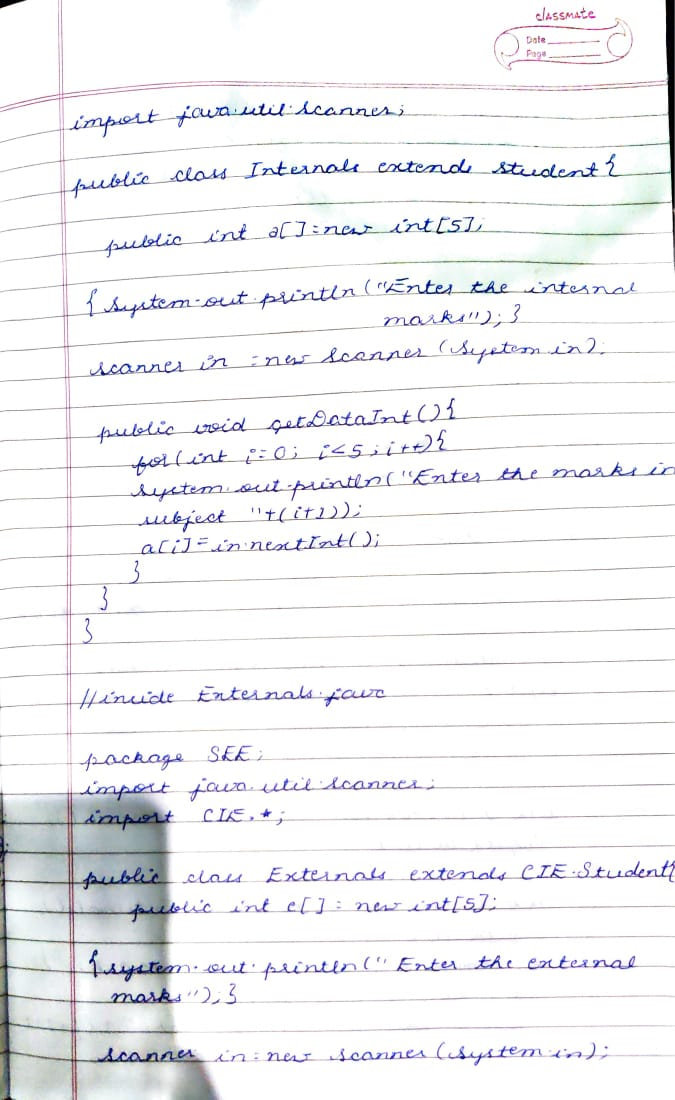 classmate
Date
Page
import java.util.scanner;
public class Internals extends student {
public int a[]=new int[5];
{ System.out.println("Enter the internal
marks"); }
scanner in =new Scanner (System.in);
public void getDataInt(){
for(int i=0; i<5; i++){
System.out.println("Enter the marks in
subject "+(i+1));
a[i]=in.nextInt();
}
}
}
//inside Externals.java
package SEE;
import java.util.scanner;
import CIE.*;
public class Externals extends CIE.Student{
public int e[]=new int[5];
{system.out.println(" Enter the external
marks"); }
scanner in=new scanner(System.in);